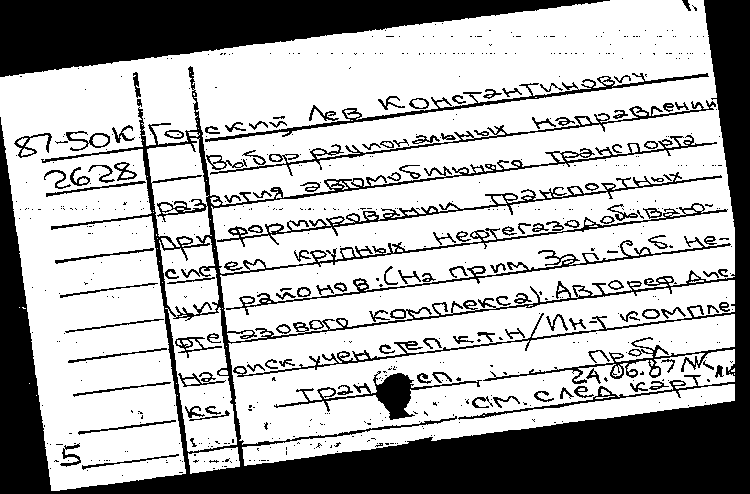 87-50К Горский, Лев Константинович
2628 Выбор рациональных направлений
развития автомобильного транспорта
при формировании транспортных
систем крупных нефтегазодобываю-
щих районов: (На прим. Зап.-Сиб. не-
фтегазового комплекса): Автореф. дис.
на соиск. учен. степ. к.т.н / Ин-т компле-
кс. трансп. пробл.
24.06.87
см. след. карт.
5